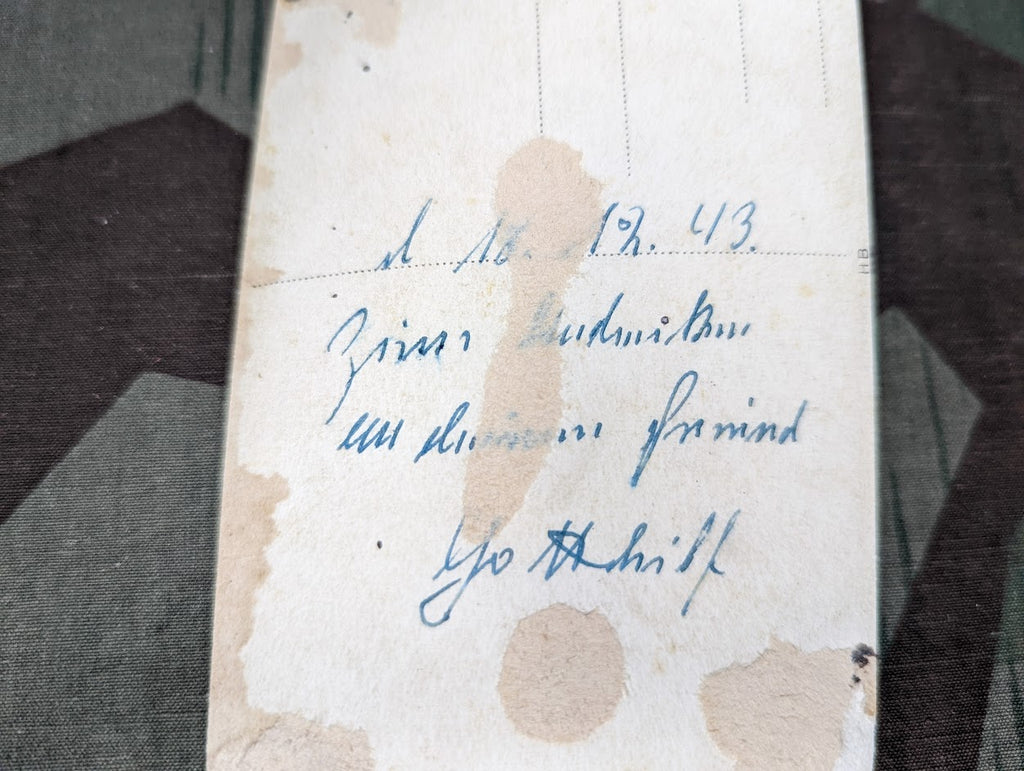 d 18. 12. 43.
Zum Andenken
an deinem Freund
Gotthilf
HB